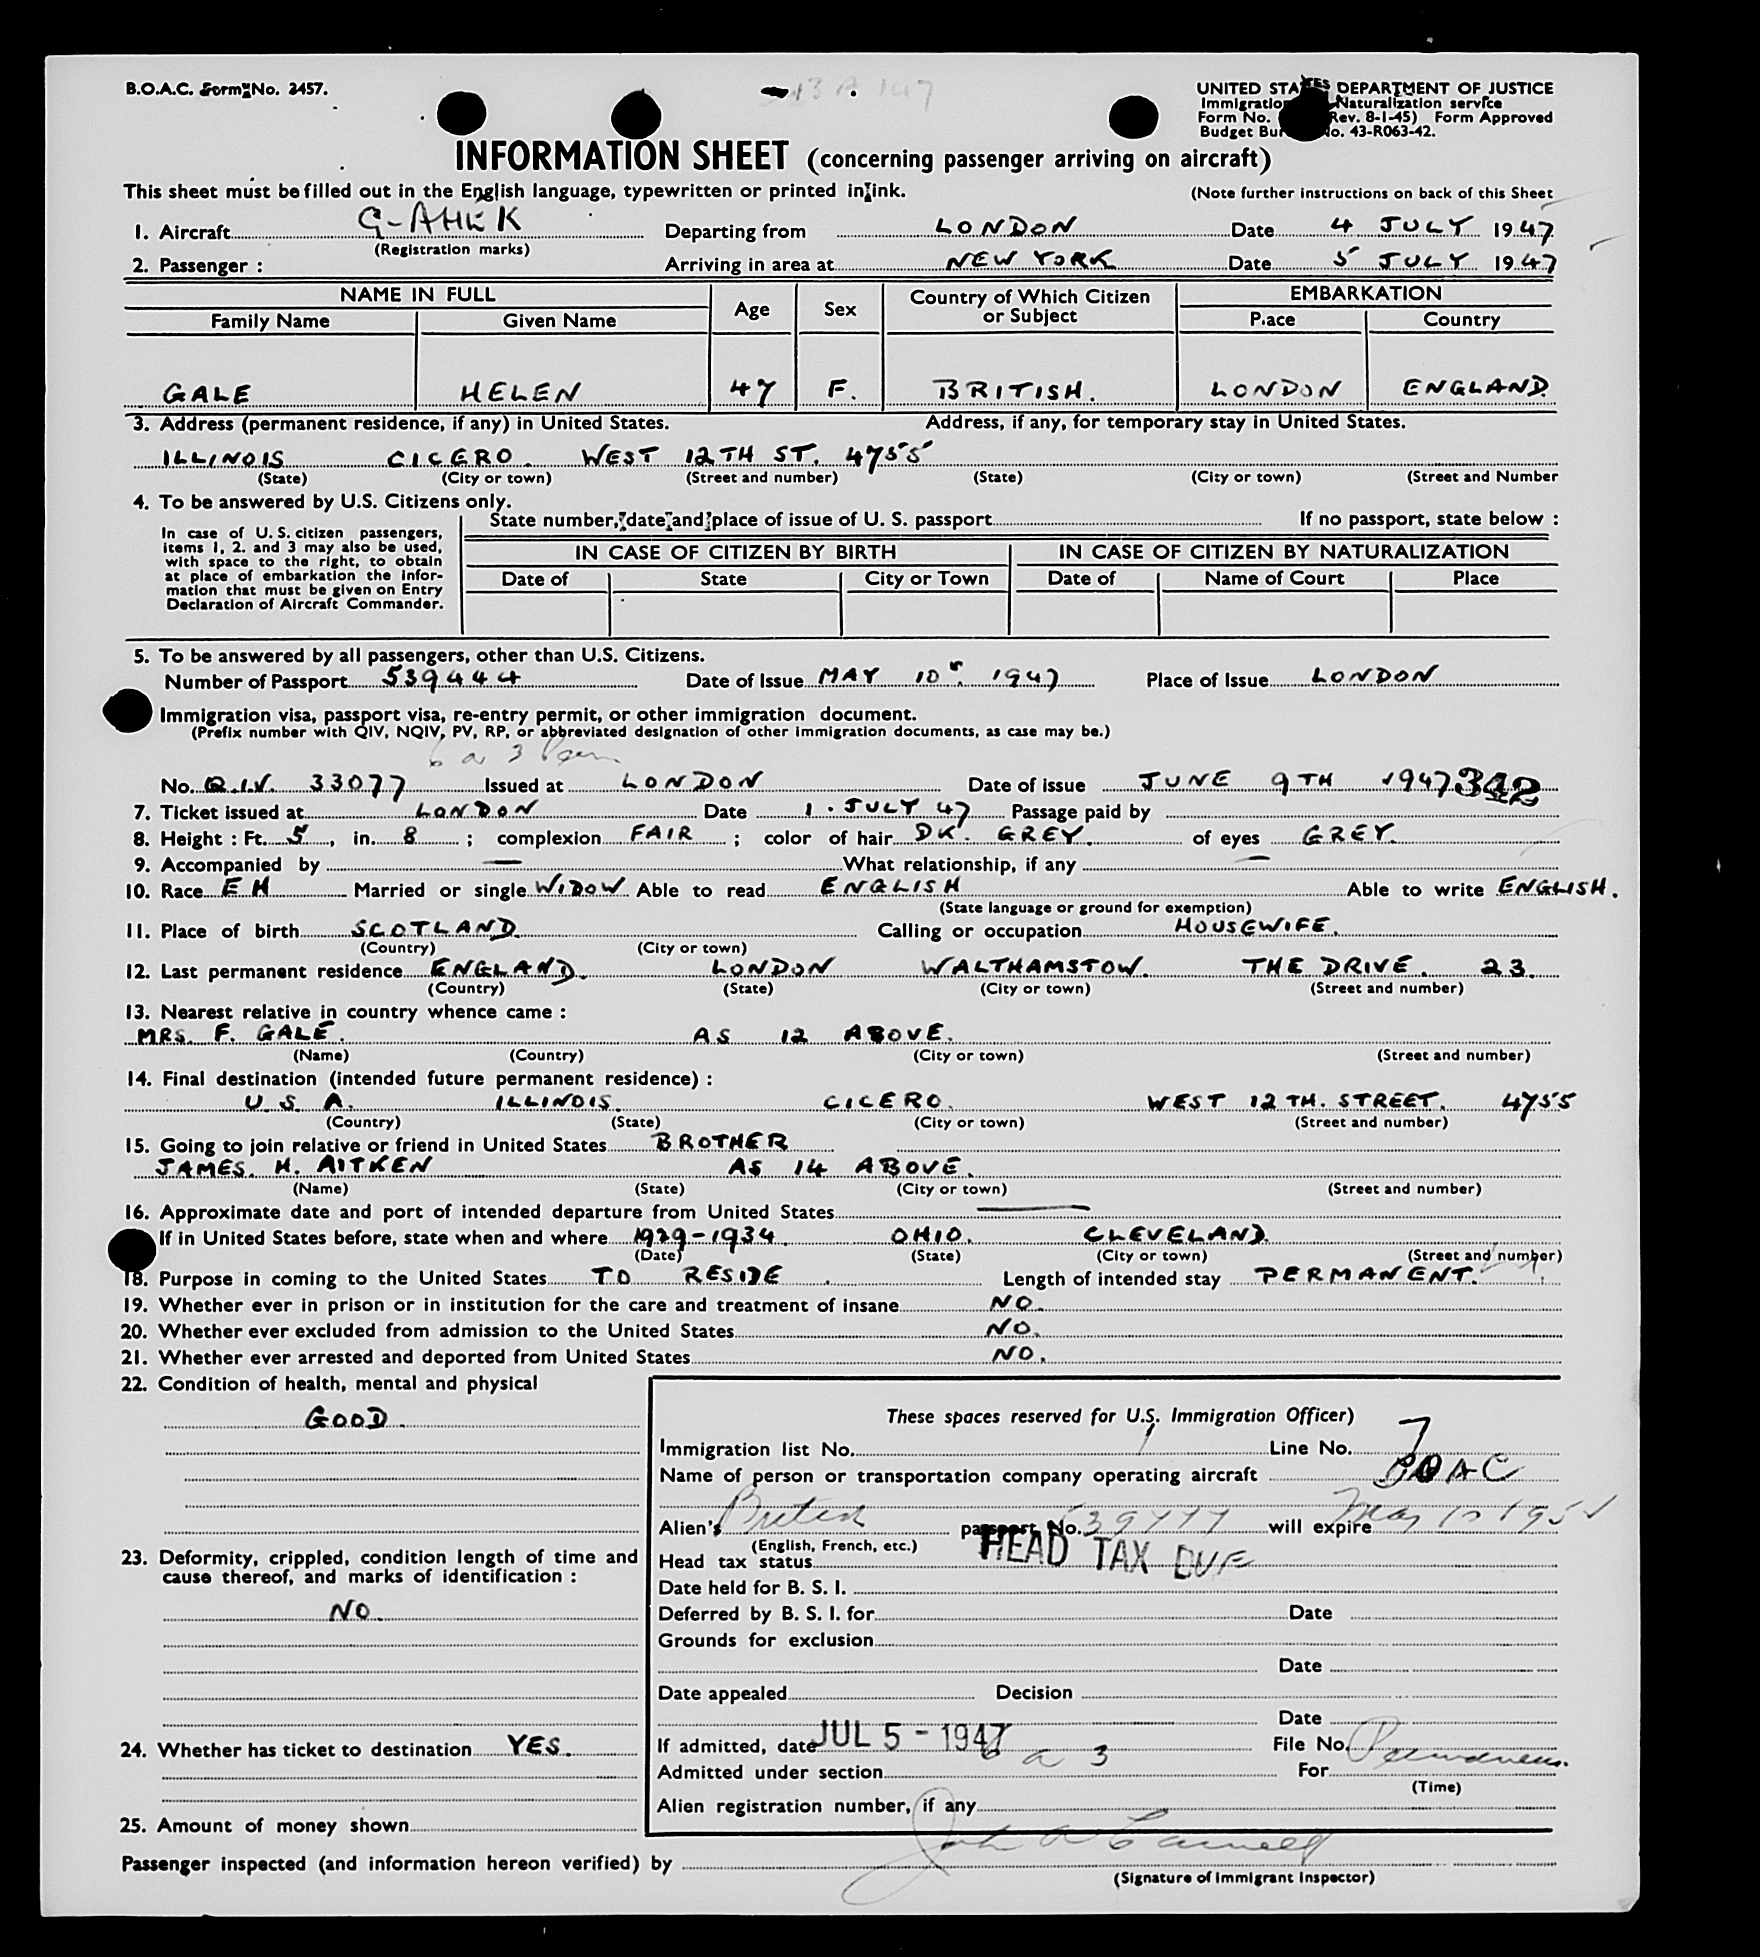 B.O.A.C. Form No. 2457.
UNITED STATES DEPARTMENT OF JUSTICE
Immigration Naturalization service
Form No. Rev. 8-1-45) Form Approved
Budget No. 43-R063-42.
INFORMATION SHEET (concerning passenger arriving on aircraft)
This sheet must be filled out in the English language, typewritten or printed in ink. (Note further instructions on back of this Sheet
1. Aircraft G-AHEK Departing from LONDON Date 4 JULY 1947
(Registration marks)
2. Passenger : Arriving in area at NEW YORK Date 5 JULY 1947
NAME IN FULL Age Sex Country of Which Citizen or Subject EMBARKATION
Family Name Given Name Place Country
GALE HELEN 47 F. BRITISH. LONDON ENGLAND.
3. Address (permanent residence, if any) in United States. Address, if any, for temporary stay in United States.
ILLINOIS CICERO. WEST 12TH ST. 4755
(State) (City or town) (Street and number) (State) (City or town) (Street and Number
4. To be answered by U.S. Citizens only.
State number, date and place of issue of U. S. passport If no passport, state below :
In case of U. S. citizen passengers,
items 1, 2. and 3 may also be used,
with space to the right, to obtain
at place of embarkation the infor-
mation that must be given on Entry
Declaration of Aircraft Commander.
IN CASE OF CITIZEN BY BIRTH IN CASE OF CITIZEN BY NATURALIZATION
Date of State City or Town Date of Name of Court Place
5. To be answered by all passengers, other than U.S. Citizens.
Number of Passport 539444 Date of Issue MAY 10 1947 Place of Issue LONDON
Immigration visa, passport visa, re-entry permit, or other immigration document.
(Prefix number with QIV, NQIV, PV, RP, or abbreviated designation of other immigration documents, as case may be.)
6 a 3 Perm
No. Q.I.V. 33077 Issued at LONDON Date of issue JUNE 9TH 1947 342
7. Ticket issued at LONDON Date 1. JULY 47 Passage paid by
8. Height : Ft. 5, in. 8 ; complexion FAIR ; color of hair DK. GREY. of eyes GREY.
9. Accompanied by — What relationship, if any —
10. Race EH Married or single WIDOW Able to read ENGLISH Able to write ENGLISH.
(State language or ground for exemption)
11. Place of birth SCOTLAND Calling or occupation HOUSEWIFE.
(Country) (City or town)
12. Last permanent residence ENGLAND. LONDON WALTHAMSTOW. THE DRIVE. 23.
(Country) (State) (City or town) (Street and number)
13. Nearest relative in country whence came :
MRS. F. GALE. AS 12 ABOVE.
(Name) (Country) (City or town) (Street and number)
14. Final destination (intended future permanent residence) :
U. S. A. ILLINOIS. CICERO. WEST 12TH. STREET. 4755
(Country) (State) (City or town) (Street and number)
15. Going to join relative or friend in United States BROTHER
JAMES. H. AITKEN AS 14 ABOVE.
(Name) (State) (City or town) (Street and number)
16. Approximate date and port of intended departure from United States —
If in United States before, state when and where 1929-1934. OHIO. CLEVELAND.
(Date) (State) (City or town) (Street and number)
18. Purpose in coming to the United States TO RESIDE. Length of intended stay PERMANENT.
19. Whether ever in prison or in institution for the care and treatment of insane NO.
20. Whether ever excluded from admission to the United States NO.
21. Whether ever arrested and deported from United States NO.
22. Condition of health, mental and physical
GOOD.
23. Deformity, crippled, condition length of time and
cause thereof, and marks of identification :
NO.
24. Whether has ticket to destination YES.
25. Amount of money shown
These spaces reserved for U.S. Immigration Officer)
Immigration list No. 1 Line No. 7
Name of person or transportation company operating aircraft BOAC
Alien's British passport No. 539444 will expire May 10 1952
(English, French, etc.)
Head tax status HEAD TAX DUE
Date held for B. S. I.
Deferred by B. S. I. for Date
Grounds for exclusion
Date
Date appealed Decision
Date
If admitted, date JUL 5 - 1947 File No.
Admitted under section 6 a 3 For Permanent
(Time)
Alien registration number, if any
Passenger inspected (and information hereon verified) by
(Signature of Immigrant Inspector)